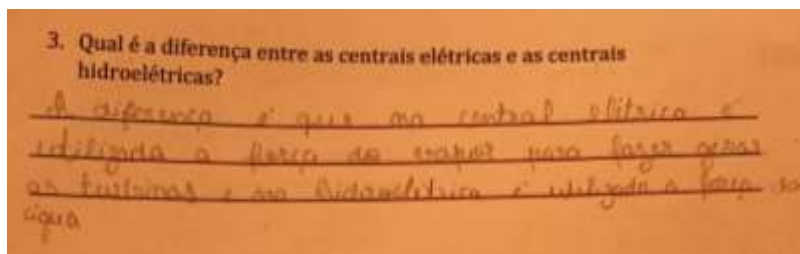 3. Qual é a diferença entre as centrais elétricas e as centrais
hidroelétricas?
A diferença é que na central elitrica é
utilizada a força do vapor para fazer gerar
as turbinas e na hidroelétrica é utilizada a força da
água